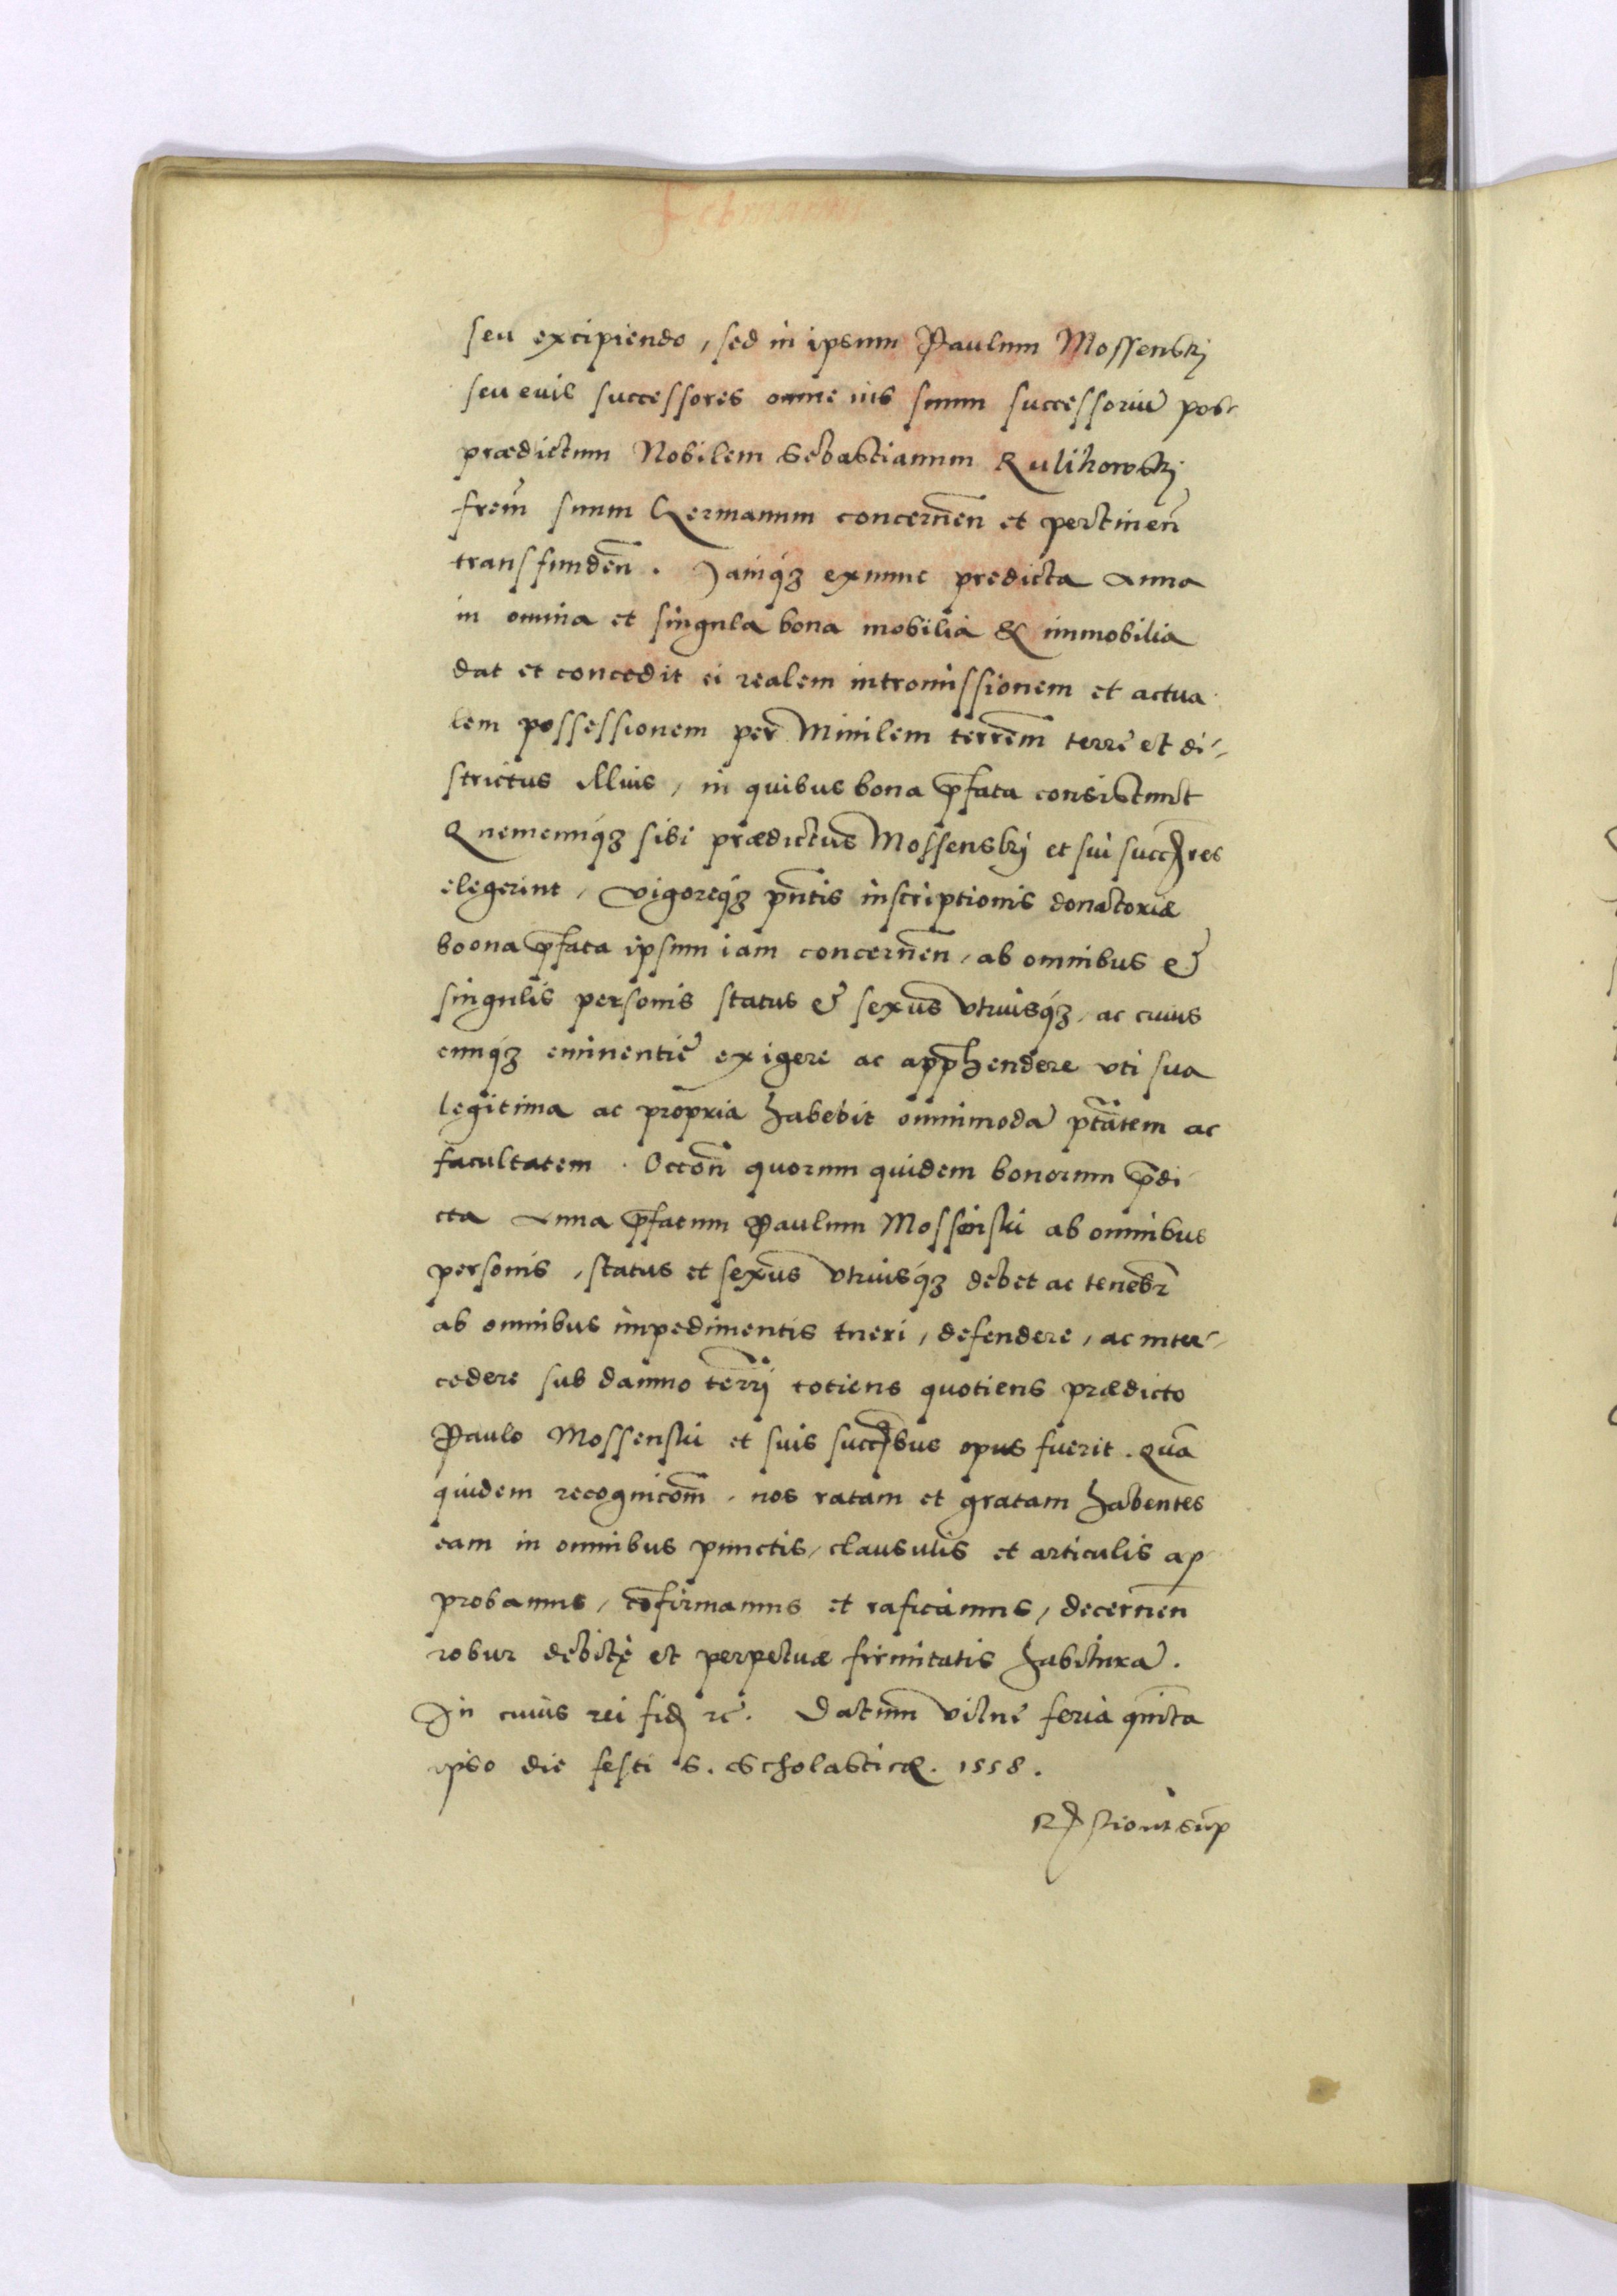 Februarius.
seu excipiendo, sed in ipsum Paulum Mossenskj
seu euis successores omne ius suum successoriū pos-
prædictum Nobilem Sebastianum Rulikowskj
frem̃ suum Germanum concerneñ et pertineñ
transfundeñ. Iamqȝ exnunc predicta Anna
in omnia et singula bona mobilia & immobilia
dat et concedit ei realem intromissionem et actua
lem possessionem per Minilem terrem̃ terre et di-
strictus illius, in quibus bona p̄fata consistunt
Quemcunqȝ sibi prædictus Mossenskj et sui succres
elegerint, vigoreqȝ pñtis inscriptionis donatoriæ
boona p̄fata ipsum iam concerneñ, ab omnibus &
singulis personis status & sexus vtriusqȝ, ac cuius
cunqȝ eminentie exigere ac app̄hendere vti sua
legitima ac propria habebit omnimodā ptãtem ac
facultatem. Occoñ quorum quidem bonorum p̄di
cta Anna p̄fatum Paulum Mossenski ab omnibus
personis, status et sexus vtriusqȝ debet ac tenebr̃
ab omnibus impedimentis tueri, defendere, ac inter-
cedere sub damno terrj totiens quotiens prædicto
Paulo Mossenski et suis succbus opus fuerit. Quã
quidem recognicom̃, nos ratam et gratam habentes
eam in omnibus punctis, clausulis et articulis ap
probamus, cõfirmamus et raficamus, decerneñ
robur debitę et perpetuæ firmitatis habiturā.
In cuius rei fidȝ rc̃. Datum vilne feria quīta
ipso die festi S. Scholasticæ. 1558.